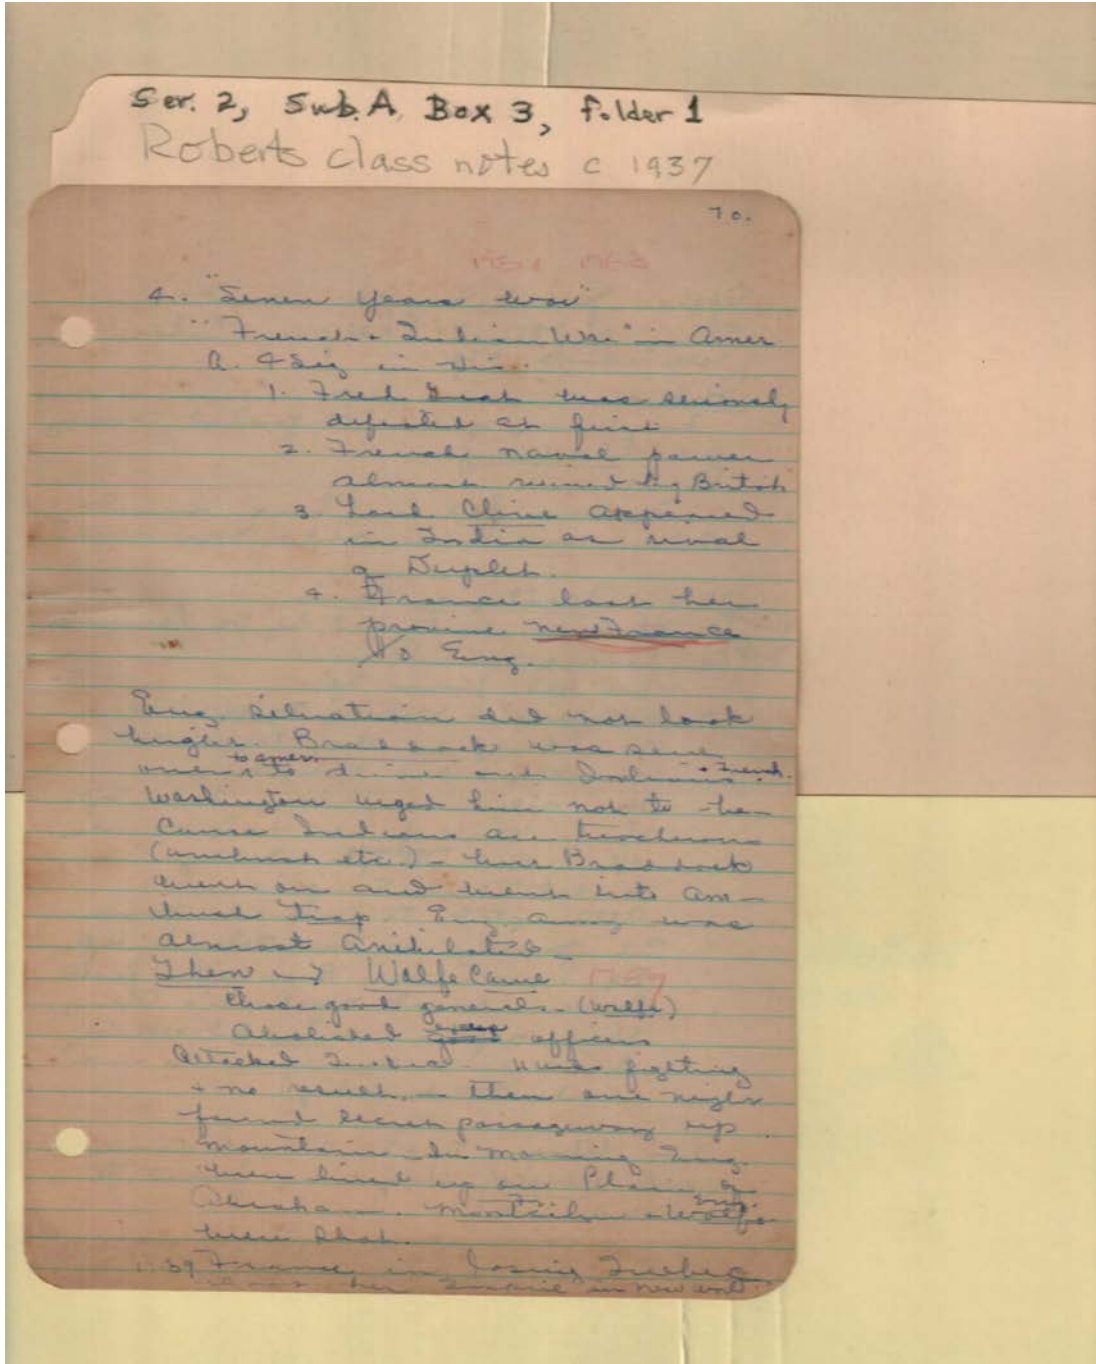 Ser. 2, Sub. A, Box 3, folder 1
Roberts class notes c 1937
70.
4. "Seven Years War"
"French + Indian War" in Amer
a. 4 Sig in His.
1. Fred Great was seriously
defeated at first
2. French naval power
almost ruined by British
3. Lord Clive appeared
in India as rival
of Duplex.
4. France lost her
province New France
to Eng.
Eng. situation did not look
bright. Braddock was sent
to Amer. + French.
over to drive out Indians
Washington urged him not to - be-
cause Indians are treacherous
(ambush etc.) - but Braddock
went on and went into am-
bush trap. Eng. army was
almost anihilated -
Then → Wolfe Came 1759
Chose good generals - (Wolfe)
Abolished officers
Attacked Quebec. fighting
+ no result, - then one night
found secret passageway up
mountain. In morning Eng.
were lined up on Plain of
Abraham. Montcalm + Wolfe
were shot.
France in losing Quebec
her Empire in new world